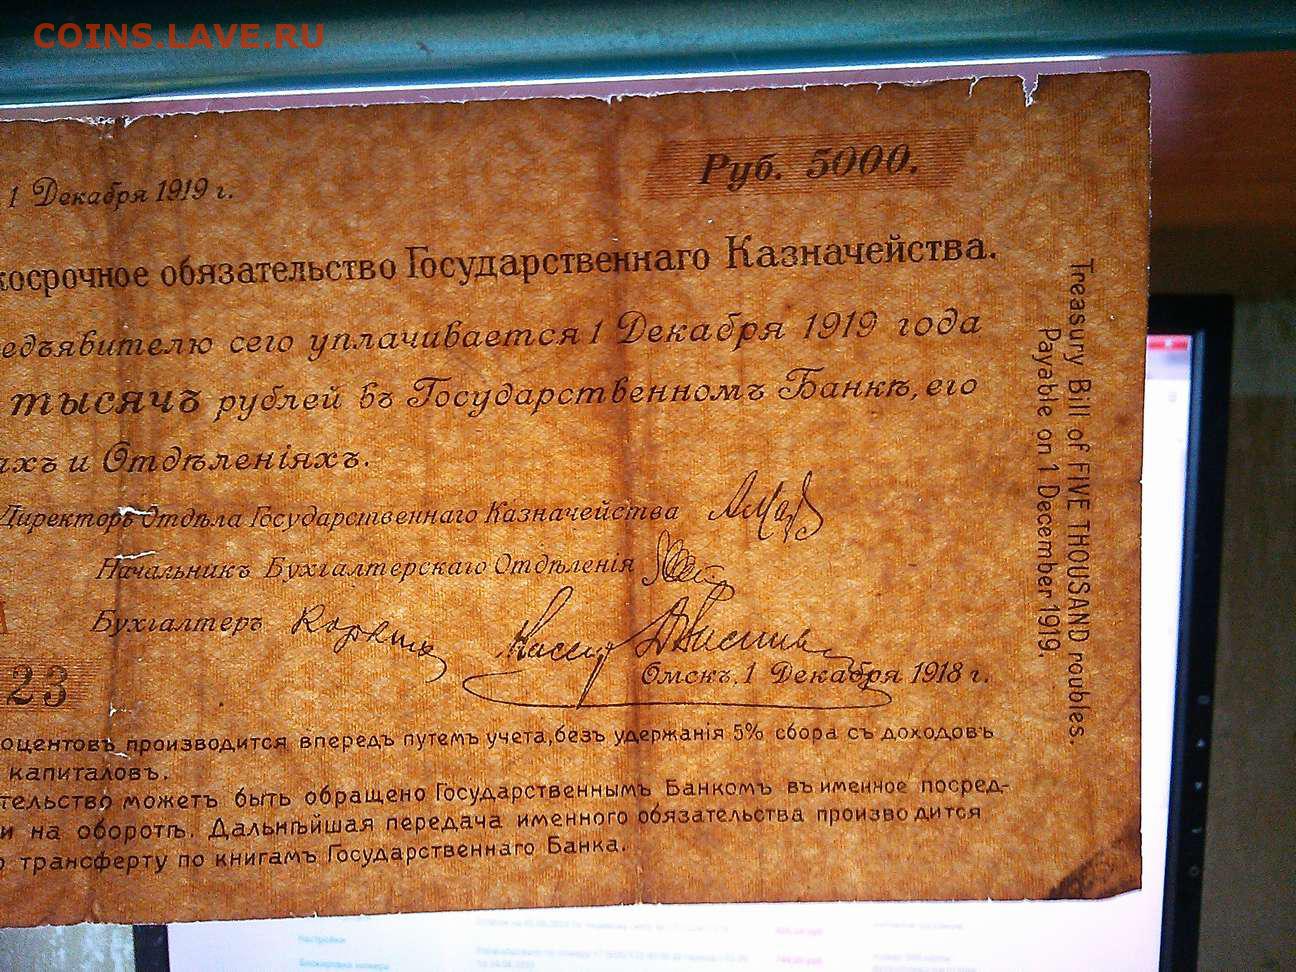 COINS.LAVE.RU
1 Декабря 1919 г.
Руб. 5000.
косрочное обязательство Государственнаго Казначейства.
едъявителю сего уплачивается 1 Декабря 1919 года
тысячъ рублей въ Государственномъ Банкѣ, его
ахъ и Отдѣленіяхъ.
Директоръ Отдѣла Государственнаго Казначейства
Начальникъ Бухгалтерскаго Отдѣленія
Бухгалтеръ
Омскъ, 1 Декабря 1918 г.
23
оцентовъ производится впередъ путемъ учета, безъ удержанія 5% сбора съ доходовъ
капиталовъ.
тельство можетъ быть обращено Государственнымъ Банкомъ въ именное посред-
и на оборотѣ. Дальнѣйшая передача именного обязательства производится
о трансферту по книгамъ Государственнаго Банка.
Treasury Bill of FIVE THOUSAND roubles.
Payable on 1 December 1919.
Настройки